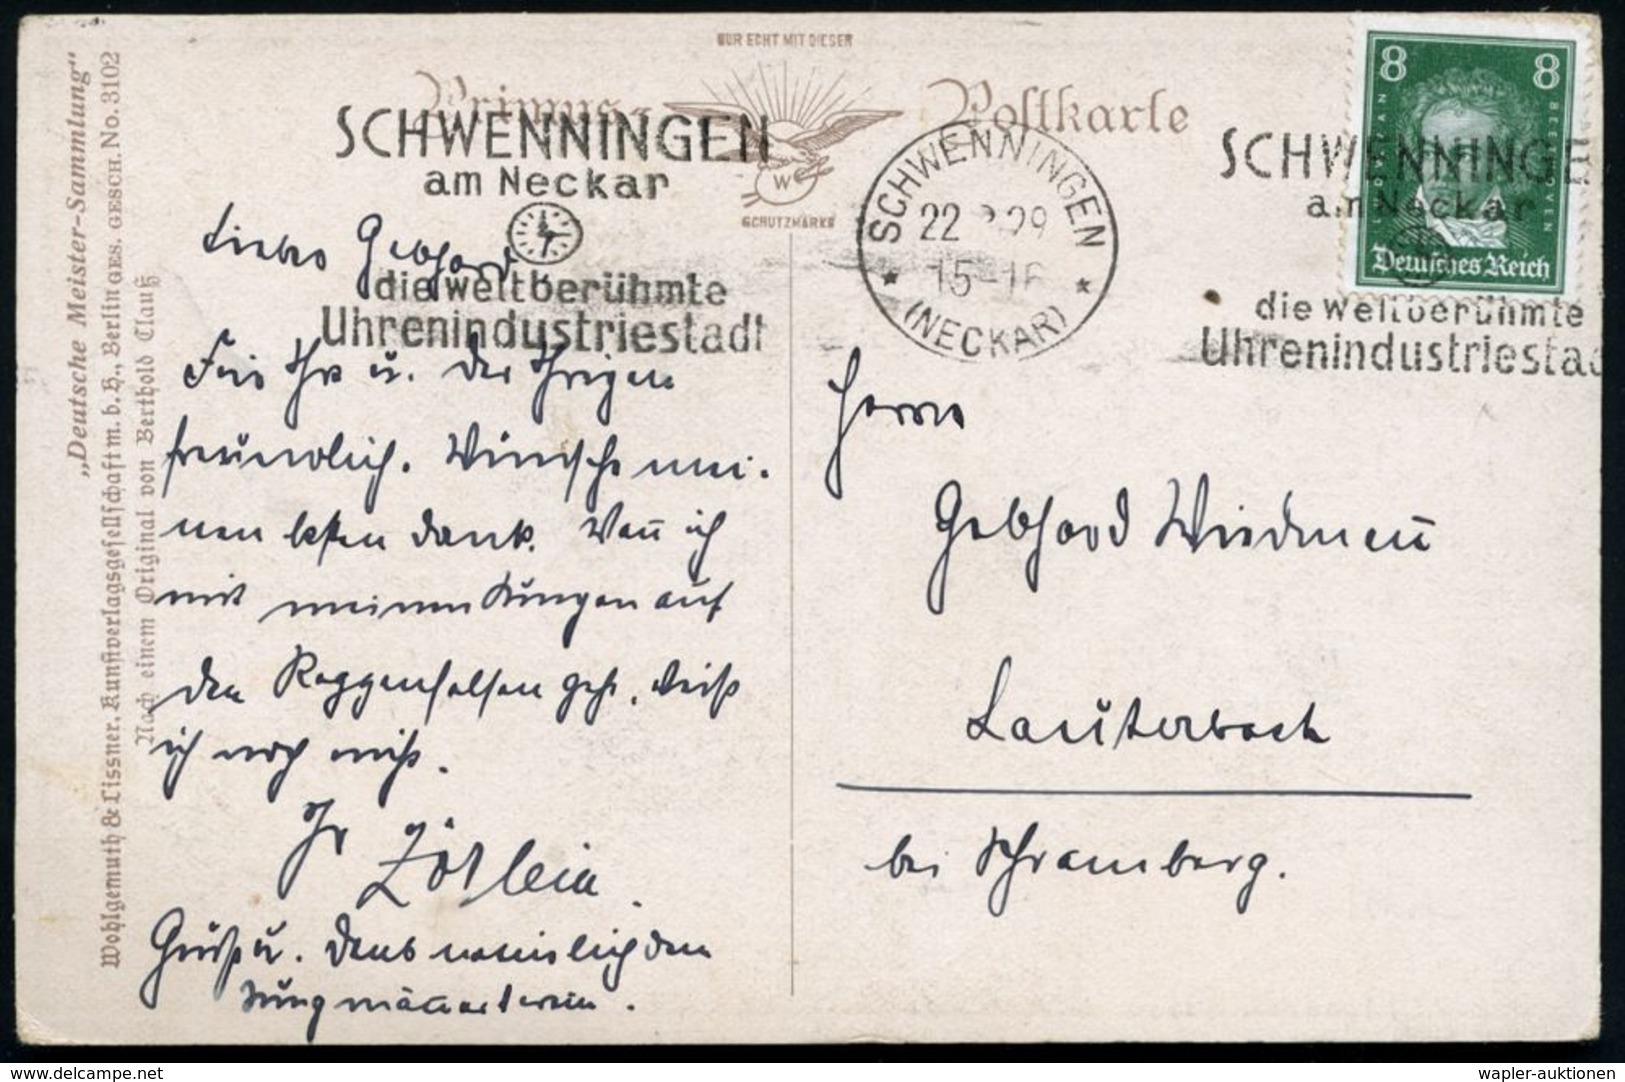 NUR ECHT MIT DIESER
Primus-Postkarte
W
SCHUTZMARKE
SCHWENNINGEN
am Neckar
die weltberühmte
Uhrenindustriestadt
SCHWENNINGEN
22 29
15-16
(NECKAR)
SCHWENNINGE
am Neckar
die weltberühmte
Uhrenindustriestad
8 8
LUDWIG VAN BEETHOVEN
Deutsches Reich
„Deutsche Meister-Sammlung“
Wohlgemuth & Lissner, Kunstverlagsgesellschaft m. b. H., Berlin GES. GESCH. No. 3102
Nach einem Original von Berthold Clauß
Lieber Gebhard,
Für Ihre u. der Ihrigen
freundlich. Wünsche mei-
nen besten Dank. Wann ich
mit meinen Jungen auf
den felsen gehe, weiß
ich noch nicht.
Ihr
Grüße u. Dank den
Herrn
Gebhard Wiedmann
Lauterbach
bei Schramberg.
www.delcampe.net
wapler-auktionen